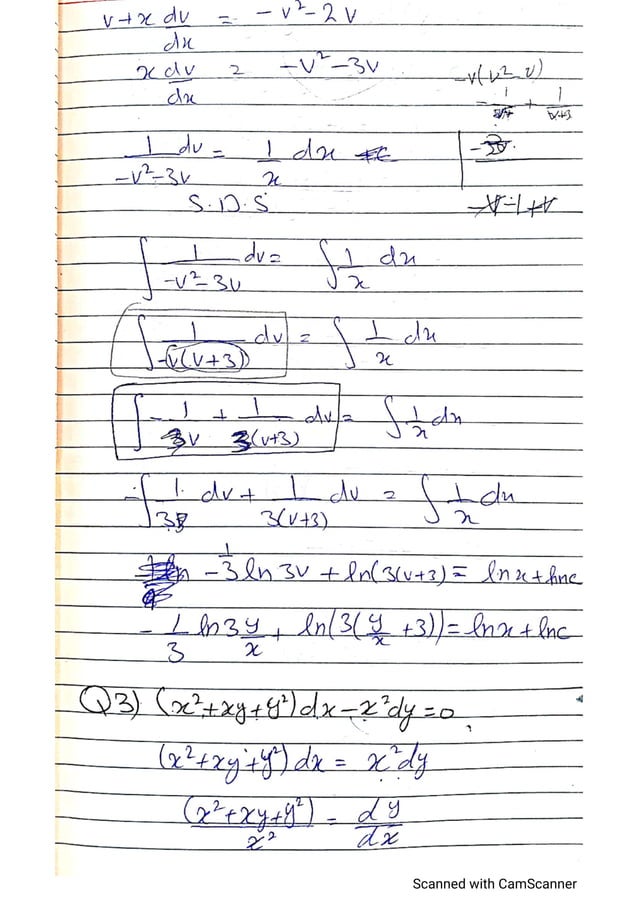 v+x dv/dx = -v²-2v
x dv/dx = -v²-3v
-v(v²-v)
1/(-v²-3v) dv = 1/x dx
S.O.S
∫ 1/(-v²-3v) dv = ∫ 1/x dx
∫ 1/(-v(v+3)) dv = ∫ 1/x dx
∫ -1/3v + 1/3(v+3) dv = ∫ 1/x dx
-∫ 1/3v dv + 1/3(v+3) dv = ∫ 1/x dx
-1/3 ln 3v + ln(3(v+3) = lnx + lnc
-1/3 ln 3 y/x + ln(3(y/x +3)) = lnx + lnc
Q3) (x²+xy+y²)dx - x²dy = 0,
(x²+xy+y²) dx = x²dy
(x²+xy+y²)/x² = dy/dx
Scanned with CamScanner